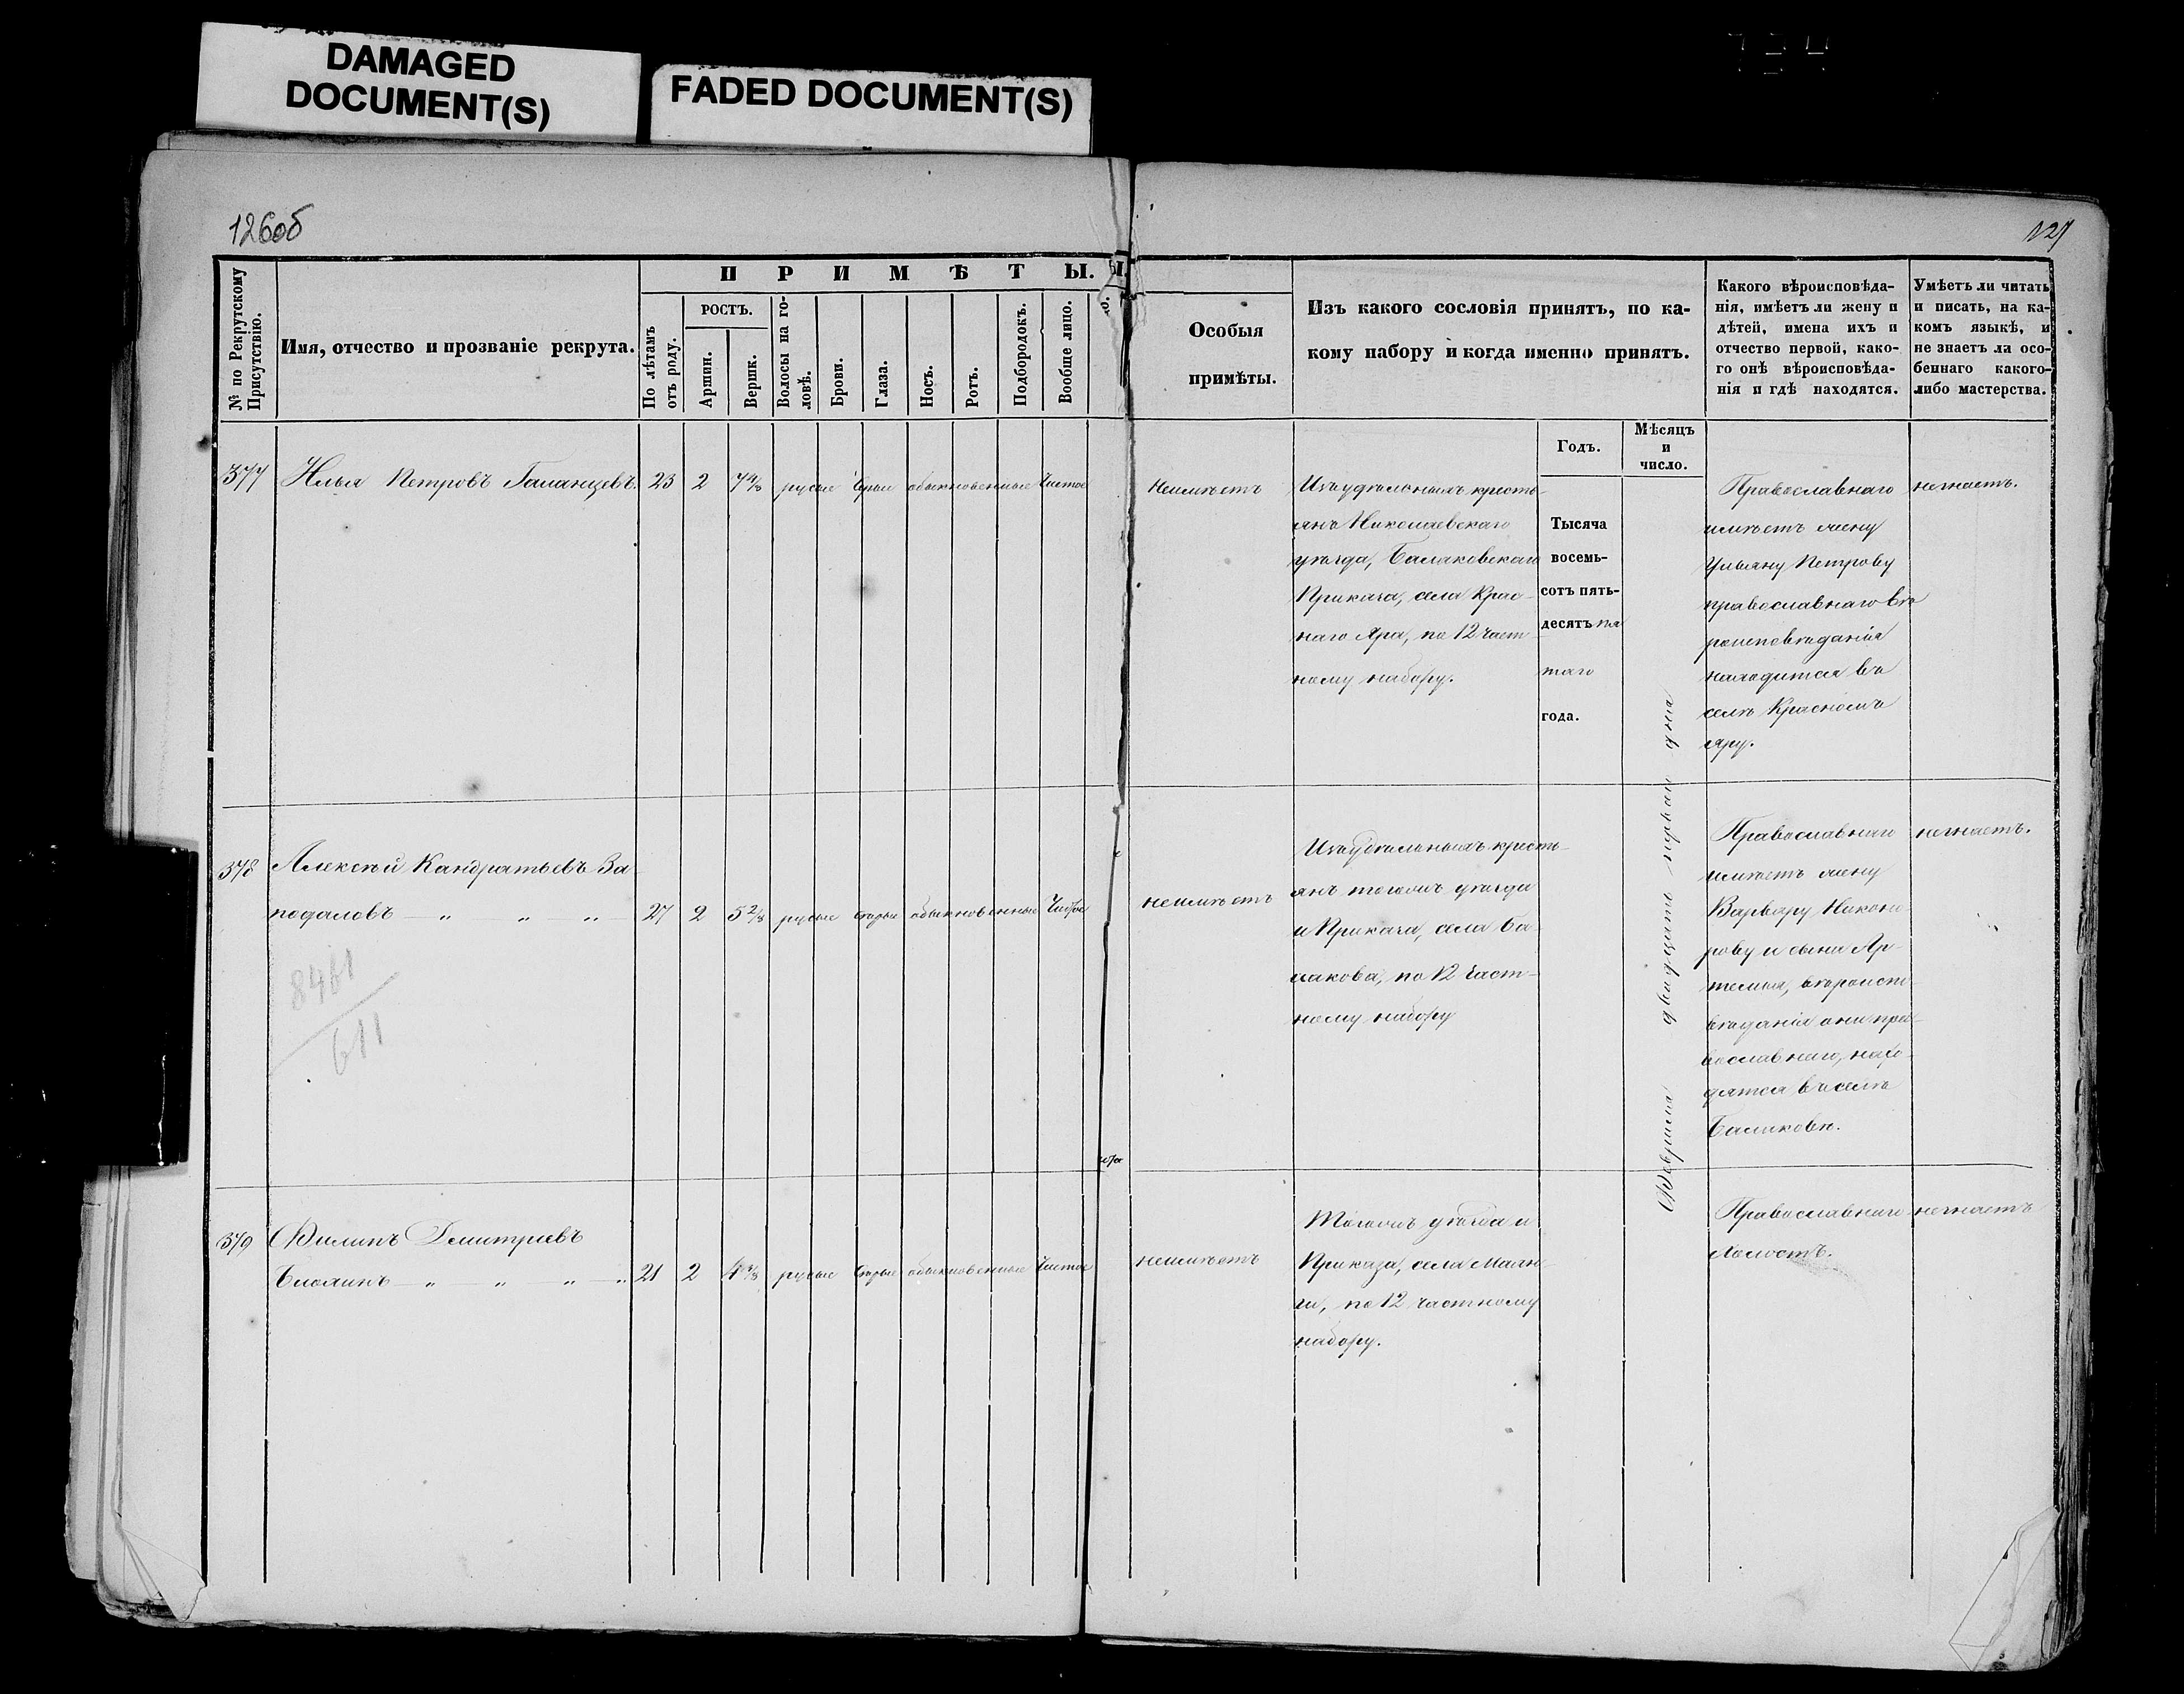 DAMAGED
DOCUMENT(S)
FADED DOCUMENT(S)
126об
127
№ по Рекрутскому
Присутствію.
Имя, отчество и прозваніе рекрута.
ПРИМѢТЫ.
По лѣтамъ
отъ роду.
РОСТЪ.
Аршин.
Вершк.
Волосы на го-
ловѣ.
Брови.
Глаза.
Носъ.
Ротъ.
Подбородокъ.
Вообще лицо.
Особыя
примѣты.
Изъ какого сословія принятъ, по ка-
кому набору и когда именно принятъ.
Какого вѣроисповѣда-
нія, имѣетъ ли жену и
дѣтей, имена ихъ и
отчество первой, како-
го онѣ вѣроисповѣда-
нія и гдѣ находятся.
Умѣетъ ли читать
и писать, на ка-
комъ языкѣ, и
не знаетъ ли осо-
беннаго какого-
либо мастерства.
Годъ.
Мѣсяцъ
и
число.
377
Илья Петровъ Галанцевъ.
23 2 7 4/8 русые сѣрые обыкновенные Чистое
Неимѣетъ
Изъ удѣльныхъ кресть-
янъ Николаевскаго
уѣзда, Балаковскаго
Приказа, села Крас-
наго Яра, по 12 част-
ному набору.
Тысяча
восемь-
сотъ пять-
десятъ пя
таго
года.
Февраля двадцать перваго дня
Православнаго
имѣетъ жену
Ульяну Петрову
православнаго вѣ
роисповѣданія
находится въ
селѣ Красномъ
яру.
незнаетъ.
378
Алексѣй Кандратьевъ За-
подаловъ — „ „ „
27 2 5 2/8 русые сѣрые обыкновенные Чистое
неимѣетъ
Изъ удѣльныхъ кресть-
янъ тогожъ уѣзда
и Приказа, села Ба-
лакова, по 12 част-
ному набору
Православнаго
имѣетъ жену
Варвару Никоно-
рову и сына Ар-
темья, вѣроиспо-
вѣданія они пра-
вославнаго, нахо-
дятся въ селѣ
Балаковѣ.
незнаетъ.
8461
611
379
Филипъ Дмитриевъ
— „ „ „ „
21 2 русые сѣрые обыкновенные Чистое
неимѣетъ
Тогожъ уѣзда и
Приказа, села Маян-
ги, по 12 частному
набору.
Православнаго
Холостъ.
незнаетъ